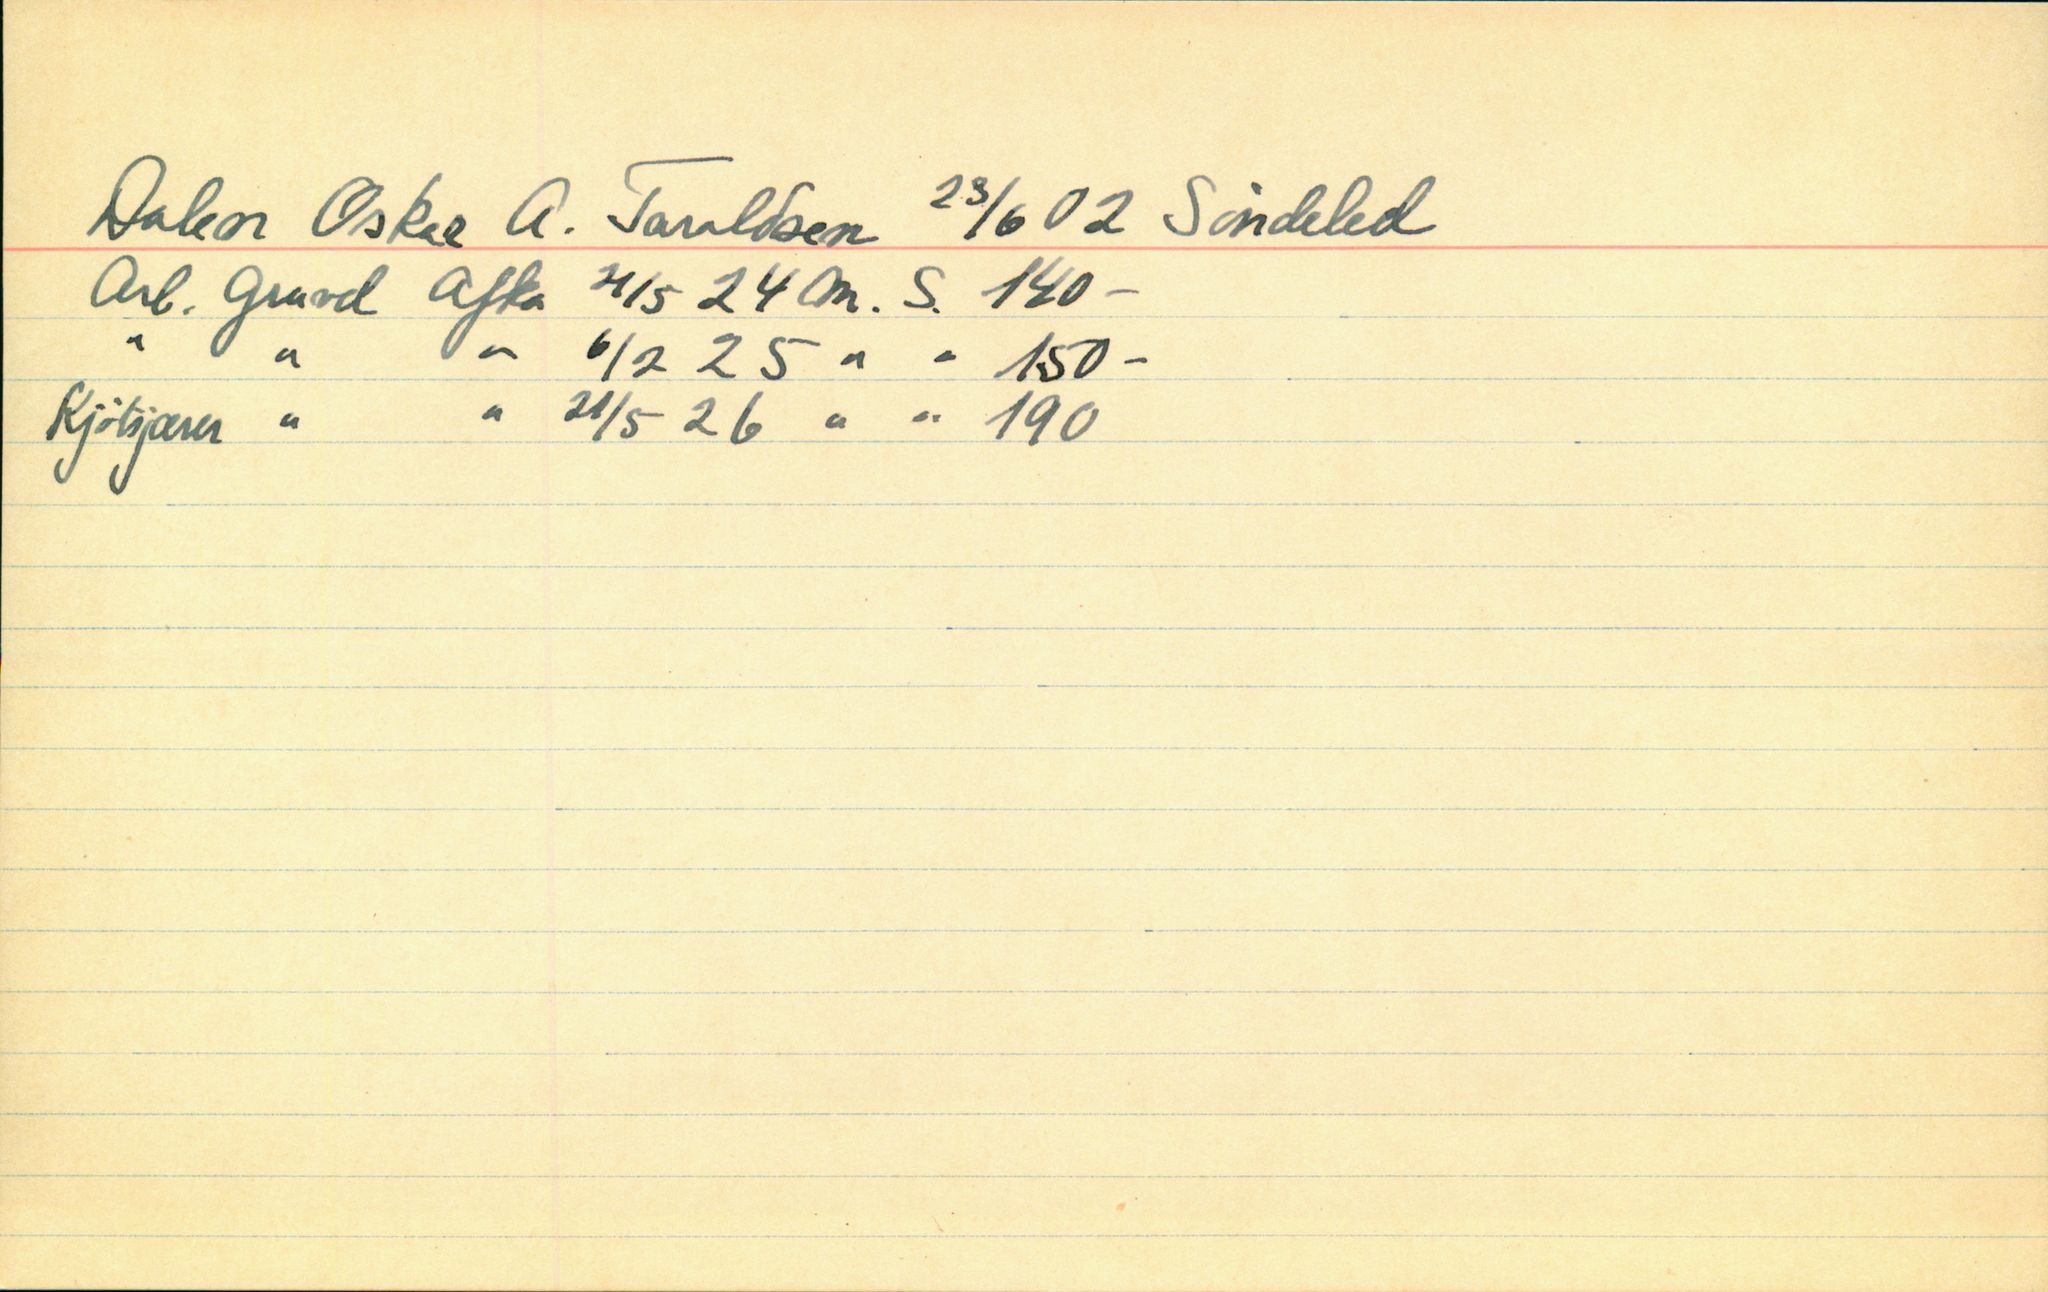 Dalen Oskar A. Taraldsen 23/6 02 Söndeled
Arb. Gravd Afka 21/5 24 M. S. 140 -
" " " 6/2 25 " " 150 -
Kjötsjærer " " 21/5 26 " " 190